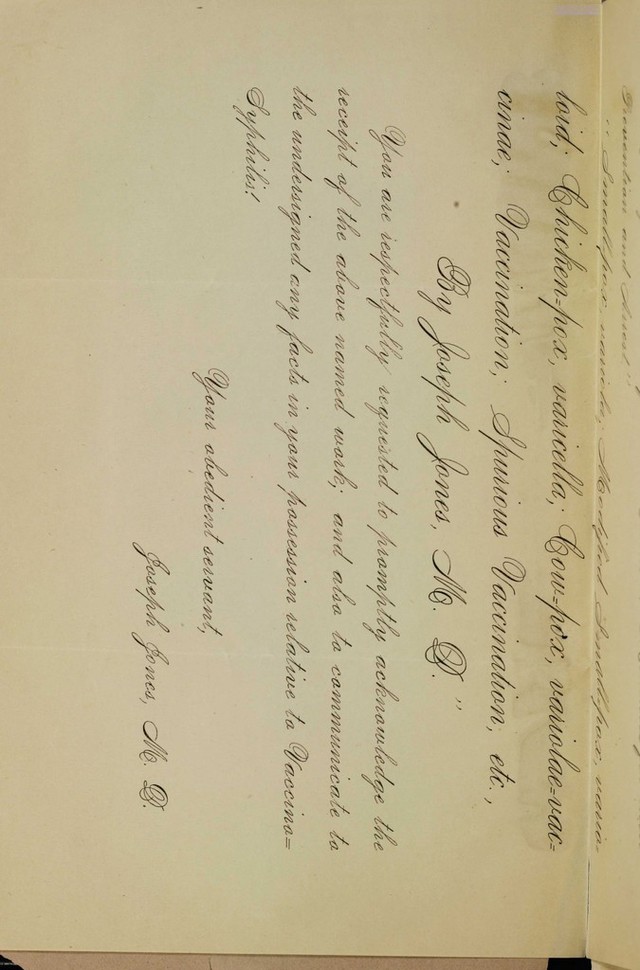 Prevention and Arrest";
"Smallpox, variola; Modified Smallpox, vario-
loid; Chicken-pox, varicella; Cow-pox, variolae-vac-
cinae; Vaccination; Spurious Vaccination, etc.,
By Joseph Jones, M. D."
You are respectfully requested to promptly acknowledge the
receipt of the above named work; and also to communicate to
the undersigned any facts in your possession relative to Vaccino-
Syphilis!
Your obedient servant,
Joseph Jones, M. D.